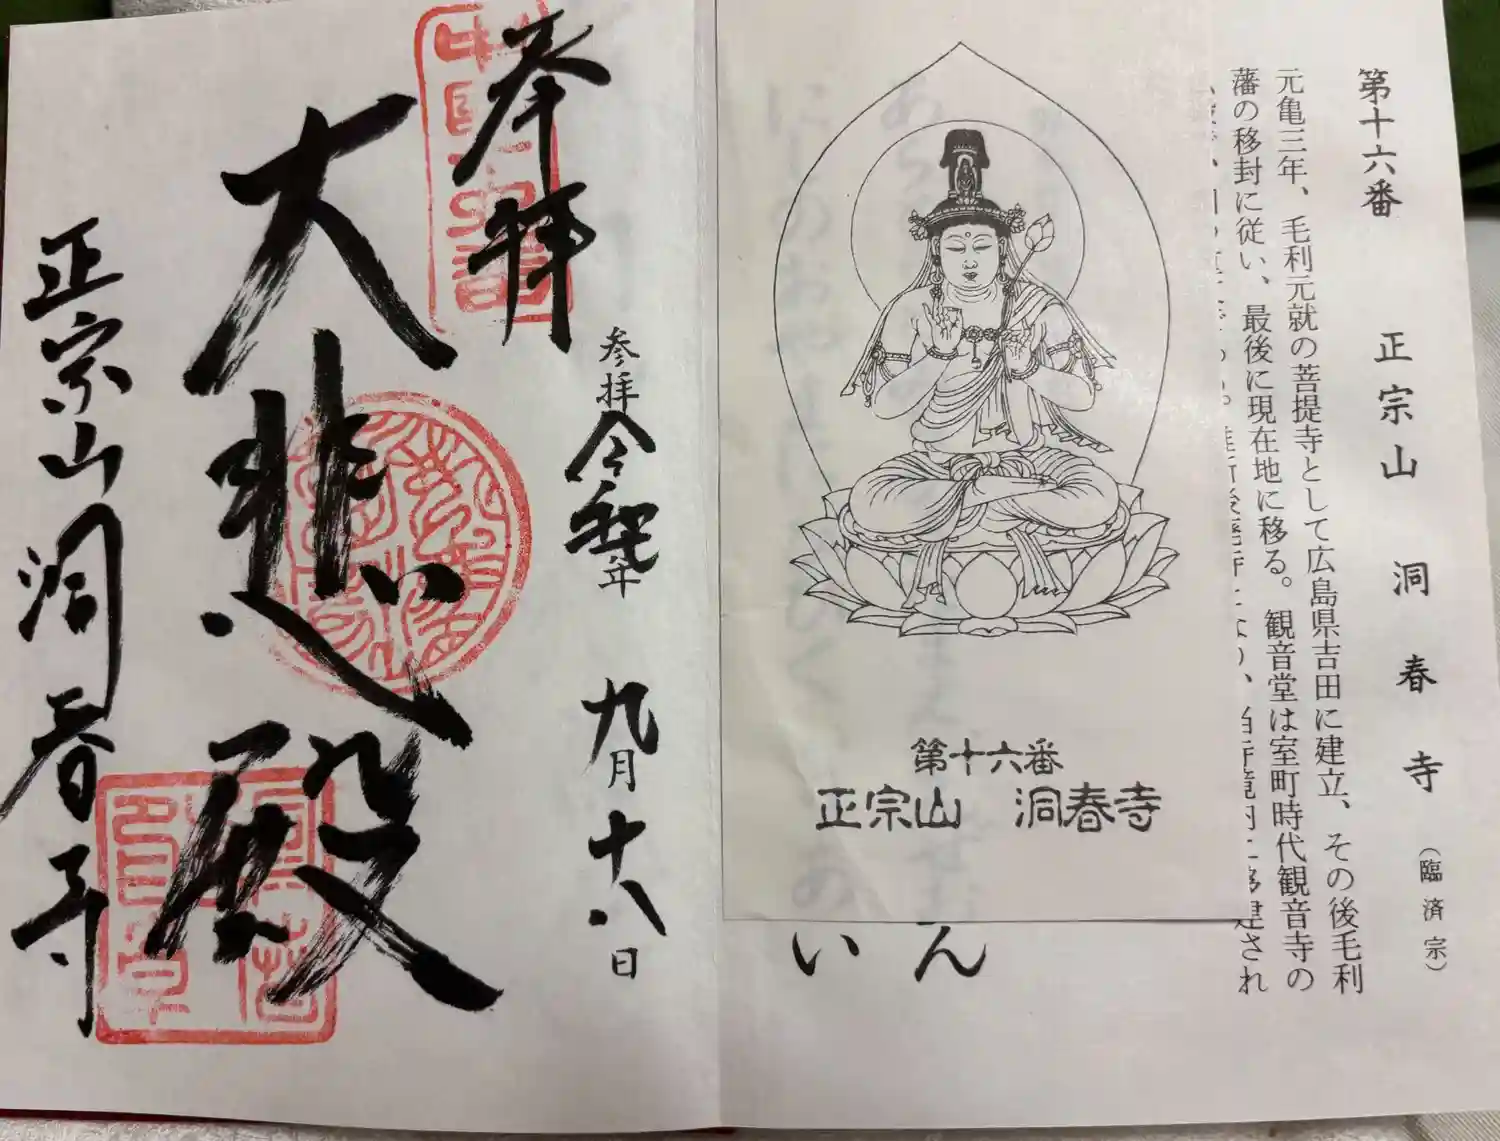 第十六番 正宗山 洞春寺 (臨済宗)
元亀三年、毛利元就の菩提寺として広島県吉田に建立、その後毛利
藩の移封に従い、最後に現在地に移る。観音堂は室町時代観音寺の
第十六番
正宗山 洞春寺
ん
い
奉拝
参拝令和元年九月十八日
大悲殿
正宗山洞春寺